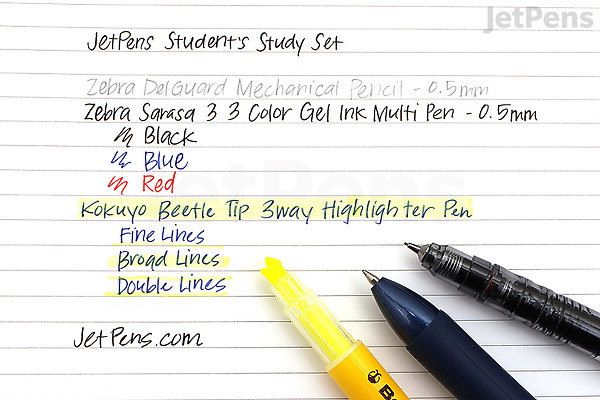 JetPens
JetPens Student's Study Set
Zebra DelGuard Mechanical Pencil - 0.5mm
Zebra Sarasa 3 3 Color Gel Ink Multi Pen - 0.5mm
Black
Blue
Red
JetPens
Kokuyo Beetle Tip 3way Highlighter Pen
Fine Lines
Broad Lines
Double Lines
JetPens.com